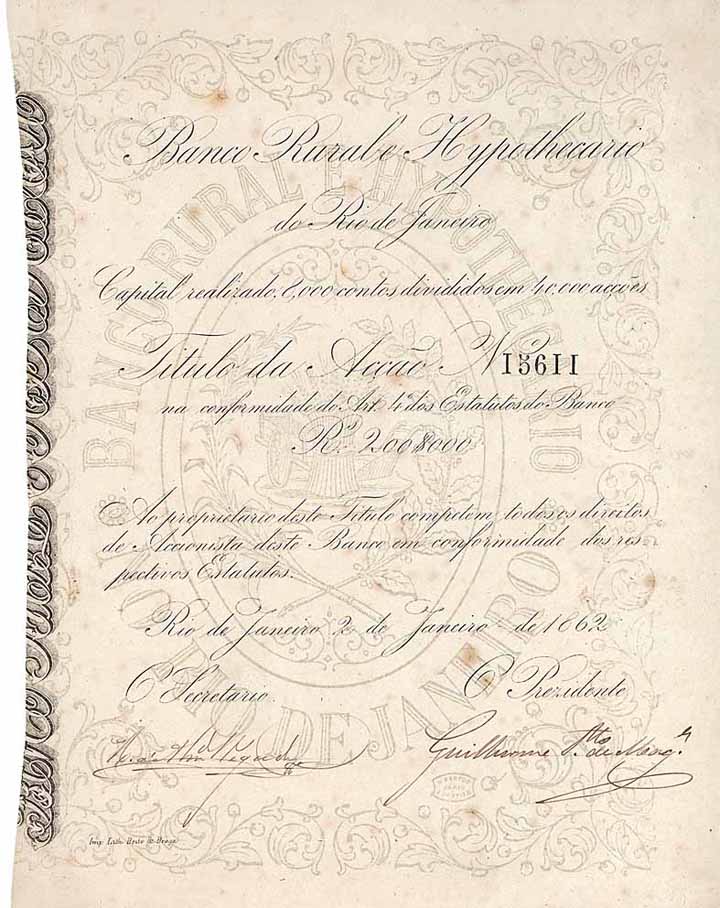 Banco Rural e Hypothecario
do Rio de Janeiro
Capital realizado, 8,000 contos divididos em 40,000 acções
Titulo da Acção N 15611
na conformidade do Art. 4º dos Estatutos do Banco
Rˢ 200$000
Ao proprietario deste Titulo competem todos os direitos
de Accionista deste Banco em conformidade dos res
pectivos Estatutos.
Rio de Janeiro 2 de Janeiro de 1862
O Secretario
O Prezidente
Guilherme
Imp. Lith. Brito & Braga
BANCO RURAL E HYPOTHECARIO
DO RIO DE JANEIRO